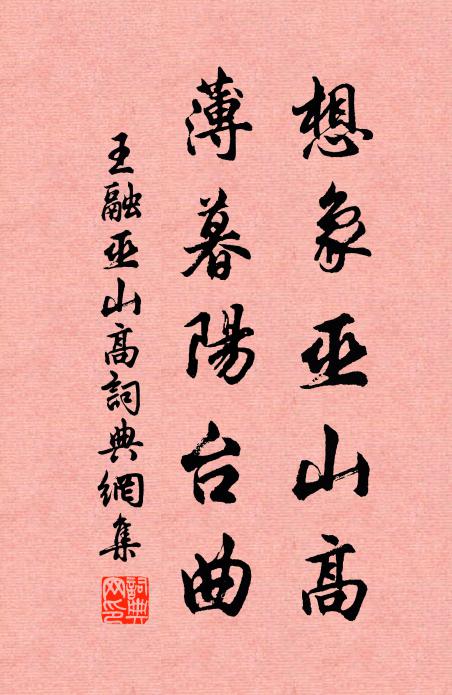 想象巫山高
薄暮陽台曲
王融巫山高詞典網集
詞典
网印